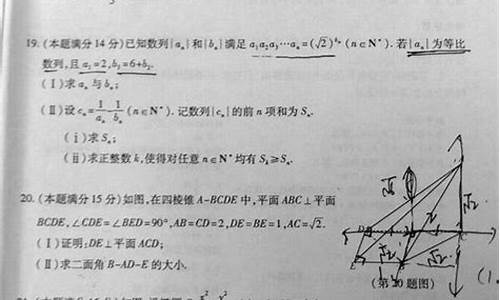 19. (本题满分14分)已知数列{aₙ}和{bₙ}满足a₁a₂a₃⋯aₙ=(√2)^bₙ (n∈N*). 若{aₙ}为等比
数列,且a₁=2,b₃=6+b₂.
(Ⅰ)求aₙ与bₙ;
(Ⅱ)设cₙ=1/aₙ-1/bₙ(n∈N*). 记数列{cₙ}的前n项和为Sₙ.
(ⅰ)求Sₙ;
(ⅱ)求正整数k,使得对任意n∈N*均有Sₖ≥Sₙ.
20. (本题满分15分)如图,在四棱锥A-BCDE中,平面ABC⊥平面
BCDE,∠CDE=∠BED=90°,AB=CD=2,DE=BE=1,AC=√2.
(Ⅰ)证明:DE⊥平面ACD;
(Ⅱ)求二面角B-AD-E的大小.
(第20题图)
√2
√2
(1.